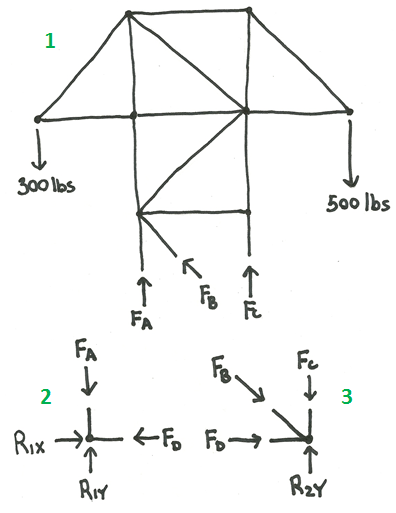 1
300 lbs
500 lbs
FA
FB
FC
2
FA
R1X
FD
R1Y
3
FB
FC
FD
R2Y